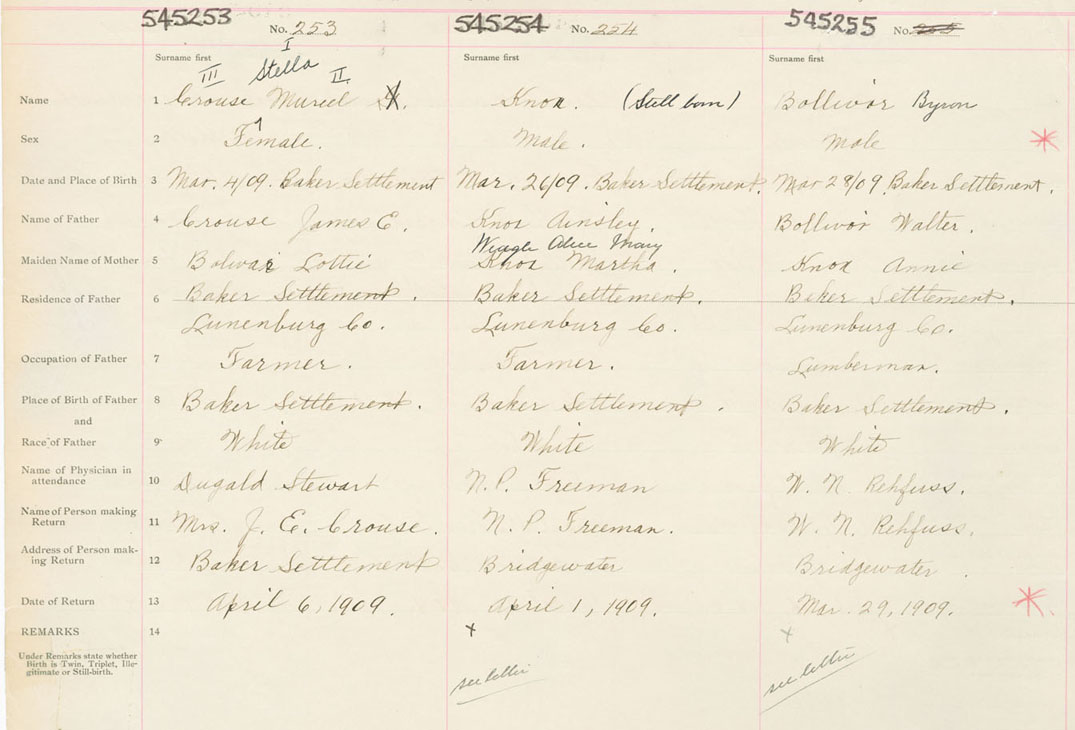 545253 No. 253 545254 No. 254 545255 No.
Surname first Surname first Surname first
I
III Stella II
Name 1 Crouse Muriel Knox. (Still born) Bollivor Byron
Sex 2 Female. Male. Male
Date and Place of Birth 3 Mar. 4/09. Baker Settlement Mar. 26/09. Baker Settlement. Mar 28/09 Baker Settlement.
Name of Father 4 Crouse James E. Knox Ainsley. Bollivor Walter.
Alice Mary
Maiden Name of Mother 5 Bolivar Lottie Knox Martha. Knox Annie
Residence of Father 6 Baker Settlement. Baker Settlement. Baker Settlement.
Lunenburg Co. Lunenburg Co. Lunenburg Co.
Occupation of Father 7 Farmer. Farmer. Lumberman.
Place of Birth of Father 8 Baker Settlement. Baker Settlement. Baker Settlement.
and
Race of Father 9 White White White
Name of Physician in
attendance 10 Dugald Stewart N. P. Freeman W. N. Rehfuss.
Name of Person making
Return 11 Mrs. J. E. Crouse. N. P. Freeman. W. N. Rehfuss.
Address of Person mak-
ing Return 12 Baker Settlement Bridgewater Bridgewater.
Date of Return 13 April 6, 1909. April 1, 1909. Mar. 29, 1909.
REMARKS 14 x x
Under Remarks state whether
Birth is Twin, Triplet, Ille-
gitimate or Still-birth.
see letter see letter